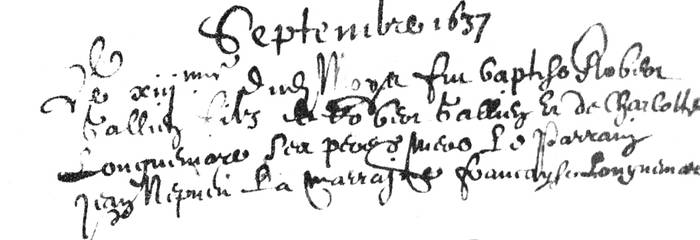 Septembre 1637
Le xiiii me dud moys fut baptise Robert
Gallien filz de Robert Gallien et de Charlotte
Longuemare ses pere & mere Le Parrain
Jean Nepveu La marraine francoyse Longuemare